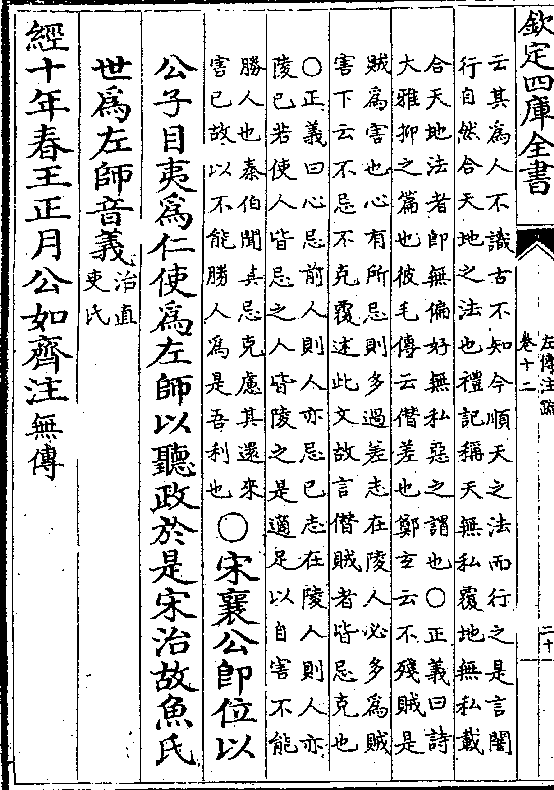 欽定四庫全書
左傳注疏
卷十二
二十
云其為人不識古不知今順天之法而行之是言闇
行自然合天地之法也禮記稱天無私覆地無私載
合天地法者即無偏好無私惡之謂也○正義曰詩
大雅抑之篇也彼毛傳云僭差也鄭玄云不殘賊是
賊為害也心有所忌則多過差志在陵人必多為賊
害下云不忌不克覆述此文故言僭賊者皆忌克也
○正義曰心忌前人則人亦忌已志在陵人則人亦
陵已若使人皆忌之人皆陵之是適足以自害不能
勝人也秦伯聞其忌克慮其還來
害已故以不能勝人為是吾利也
○宋襄公即位以
公子目夷爲仁使爲左師以聽政於是宋治故魚氏
世爲左師音義
治直
吏氏
經十年春王正月公如齊注無傳